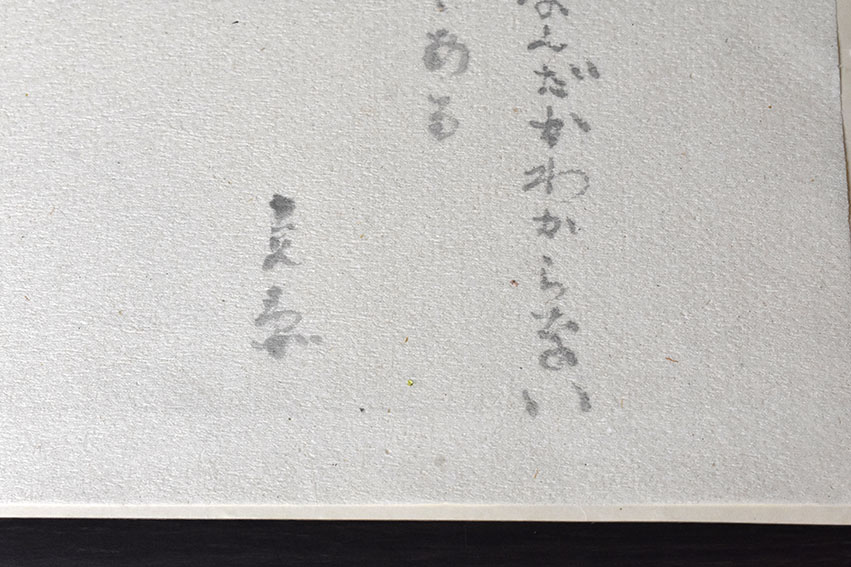 なんだかわからない
ある